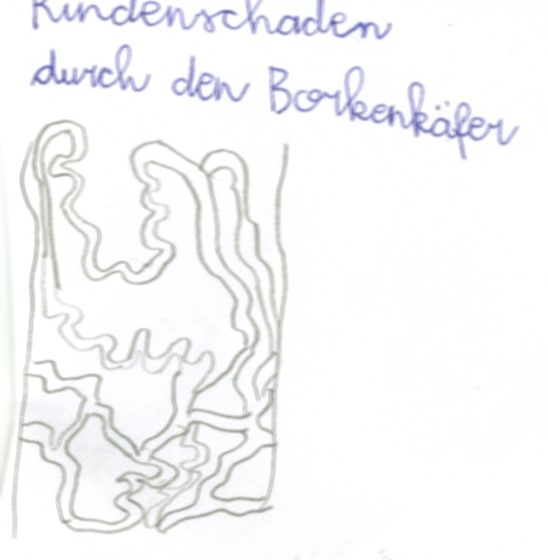 Rindenschaden
durch den Borkenkäfer